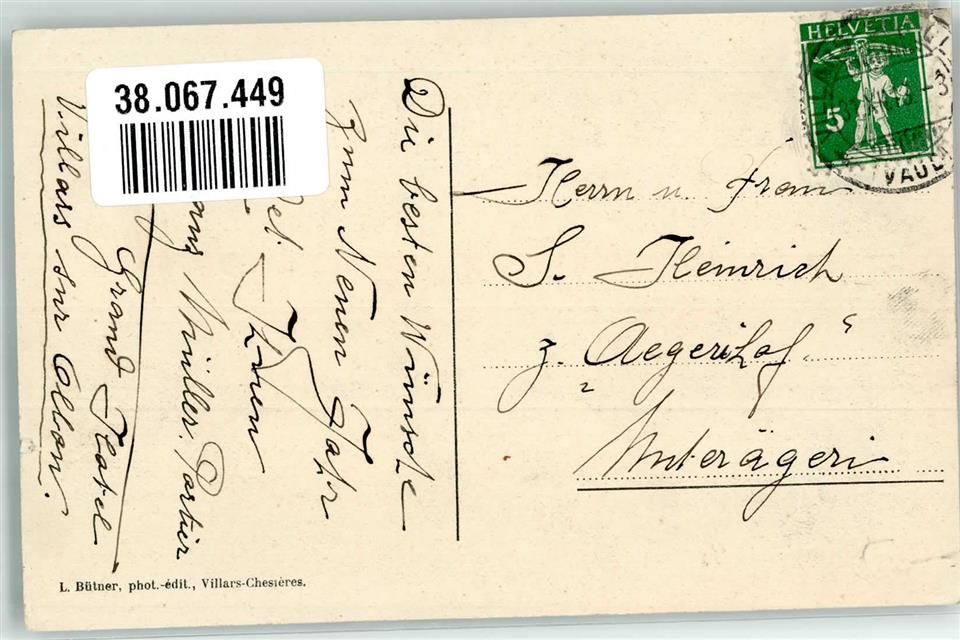 38.067.449
HELVETIA
5
VAUD
Die besten Wünsche
zum Neuen Jahr
Ihnen
Müller. Portier
Grand Hotel
Villars sur Ollon.
Herrn u. Frau
S. Heinrich
z. „Aegerihof“
Unterägeri
L. Bütner, phot.-édit., Villars-Chesières.